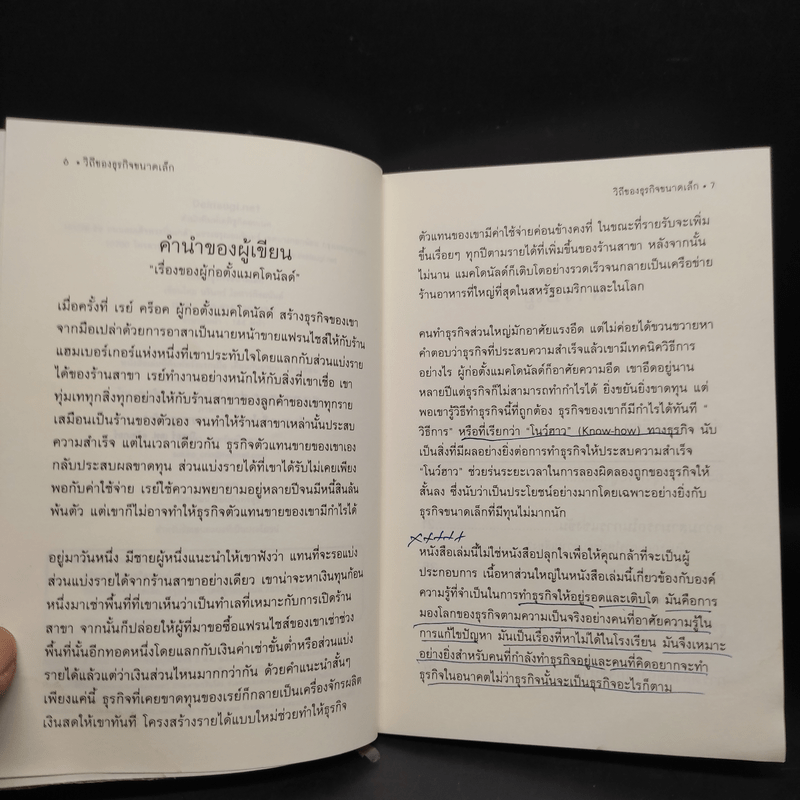 ๖ • วิถีของธุรกิจขนาดเล็ก
คำนำของผู้เขียน
"เรื่องของผู้ก่อตั้งแมคโดนัลด์"
เมื่อครั้งที่ เรย์ คร็อค ผู้ก่อตั้งแมคโดนัลด์ สร้างธุรกิจของเขา
จากมือเปล่าด้วยการอาสาเป็นนายหน้าขายแฟรนไชส์ให้กับร้าน
แฮมเบอร์เกอร์แห่งหนึ่งที่เขาประทับใจโดยแลกกับส่วนแบ่งราย
ได้ของร้านสาขา เรย์ทำงานอย่างหนักให้กับสิ่งที่เขาเชื่อ เขา
ทุ่มเททุกสิ่งทุกอย่างให้กับร้านสาขาของลูกค้าของเขาทุกราย
เสมือนเป็นร้านของตัวเอง จนทำให้ร้านสาขาเหล่านั้นประสบ
ความสำเร็จ แต่ในเวลาเดียวกัน ธุรกิจตัวแทนขายของเขาเอง
กลับประสบผลขาดทุน ส่วนแบ่งรายได้ที่เขาได้รับไม่เคยเพียง
พอกับค่าใช้จ่าย เรย์ใช้ความพยายามอยู่หลายปีจนมีหนี้สินล้น
พ้นตัว แต่เขาก็ไม่อาจทำให้ธุรกิจตัวแทนขายของเขามีกำไรได้
อยู่มาวันหนึ่ง มีชายผู้หนึ่งแนะนำให้เขาฟังว่า แทนที่จะรอแบ่ง
ส่วนแบ่งรายได้จากร้านสาขาอย่างเดียว เขาน่าจะหาเงินทุนก้อน
หนึ่งมาเช่าพื้นที่ที่เขาเห็นว่าเป็นทำเลที่เหมาะกับการเปิดร้าน
สาขา จากนั้นก็ปล่อยให้ผู้ที่มาขอซื้อแฟรนไชส์ของเขาเช่าช่วง
พื้นที่นั้นอีกทอดหนึ่งโดยแลกกับเงินค่าเช่าขั้นต่ำหรือส่วนแบ่ง
รายได้แล้วแต่ว่าเงินส่วนไหนมากกว่ากัน ด้วยคำแนะนำสั้นๆ
เพียงแค่นี้ ธุรกิจที่เคยขาดทุนของเรย์ก็กลายเป็นเครื่องจักรผลิต
เงินสดให้เขาทันที โครงสร้างรายได้แบบใหม่ช่วยทำให้ธุรกิจ
วิถีของธุรกิจขนาดเล็ก • 7
ตัวแทนของเขามีค่าใช้จ่ายค่อนข้างคงที่ ในขณะที่รายรับจะเพิ่ม
ขึ้นเรื่อยๆ ทุกปีตามรายได้ที่เพิ่มขึ้นของร้านสาขา หลังจากนั้น
ไม่นาน แมคโดนัลด์ก็เติบโตอย่างรวดเร็วจนกลายเป็นเครือข่าย
ร้านอาหารที่ใหญ่ที่สุดในสหรัฐอเมริกาและในโลก
คนทำธุรกิจส่วนใหญ่มักอาศัยแรงฮึด แต่ไม่ค่อยได้ขวนขวายหา
คำตอบว่าธุรกิจที่ประสบความสำเร็จแล้วเขามีเทคนิควิธีการ
อย่างไร ผู้ก่อตั้งแมคโดนัลด์ก็อาศัยความฮึด เขาฮึดอยู่นาน
หลายปีแต่ธุรกิจก็ไม่สามารถทำกำไรได้ ยิ่งขยันยิ่งขาดทุน แต่
พอเขารู้วิธีทำธุรกิจนี้ที่ถูกต้อง ธุรกิจของเขาก็มีกำไรได้ทันที "
วิธีการ" หรือที่เรียกว่า "โนว์ฮาว" (Know-how) ทางธุรกิจ นับ
เป็นสิ่งที่มีผลอย่างยิ่งต่อการทำธุรกิจให้ประสบความสำเร็จ
"โนว์ฮาว" ช่วยร่นระยะเวลาในการลองผิดลองถูกของธุรกิจให้
สั้นลง ซึ่งนับว่าเป็นประโยชน์อย่างมากโดยเฉพาะอย่างยิ่งกับ
ธุรกิจขนาดเล็กที่มีทุนไม่มากนัก
หนังสือเล่มนี้ไม่ใช่หนังสือปลุกใจเพื่อให้คุณกล้าที่จะเป็นผู้
ประกอบการ เนื้อหาส่วนใหญ่ในหนังสือเล่มนี้เกี่ยวข้องกับองค์
ความรู้ที่จำเป็นในการทำธุรกิจให้อยู่รอดและเติบโต มันคือการ
มองโลกของธุรกิจตามความเป็นจริงอย่างคนที่อาศัยความรู้ใน
การแก้ไขปัญหา มันเป็นเรื่องที่หาไม่ได้ในโรงเรียน มันจึงเหมาะ
อย่างยิ่งสำหรับคนที่กำลังทำธุรกิจอยู่และคนที่คิดอยากจะทำ
ธุรกิจในอนาคตไม่ว่าธุรกิจนั้นจะเป็นธุรกิจอะไรก็ตาม